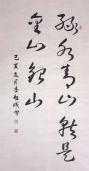 绿水青山就是
金山银山
己亥